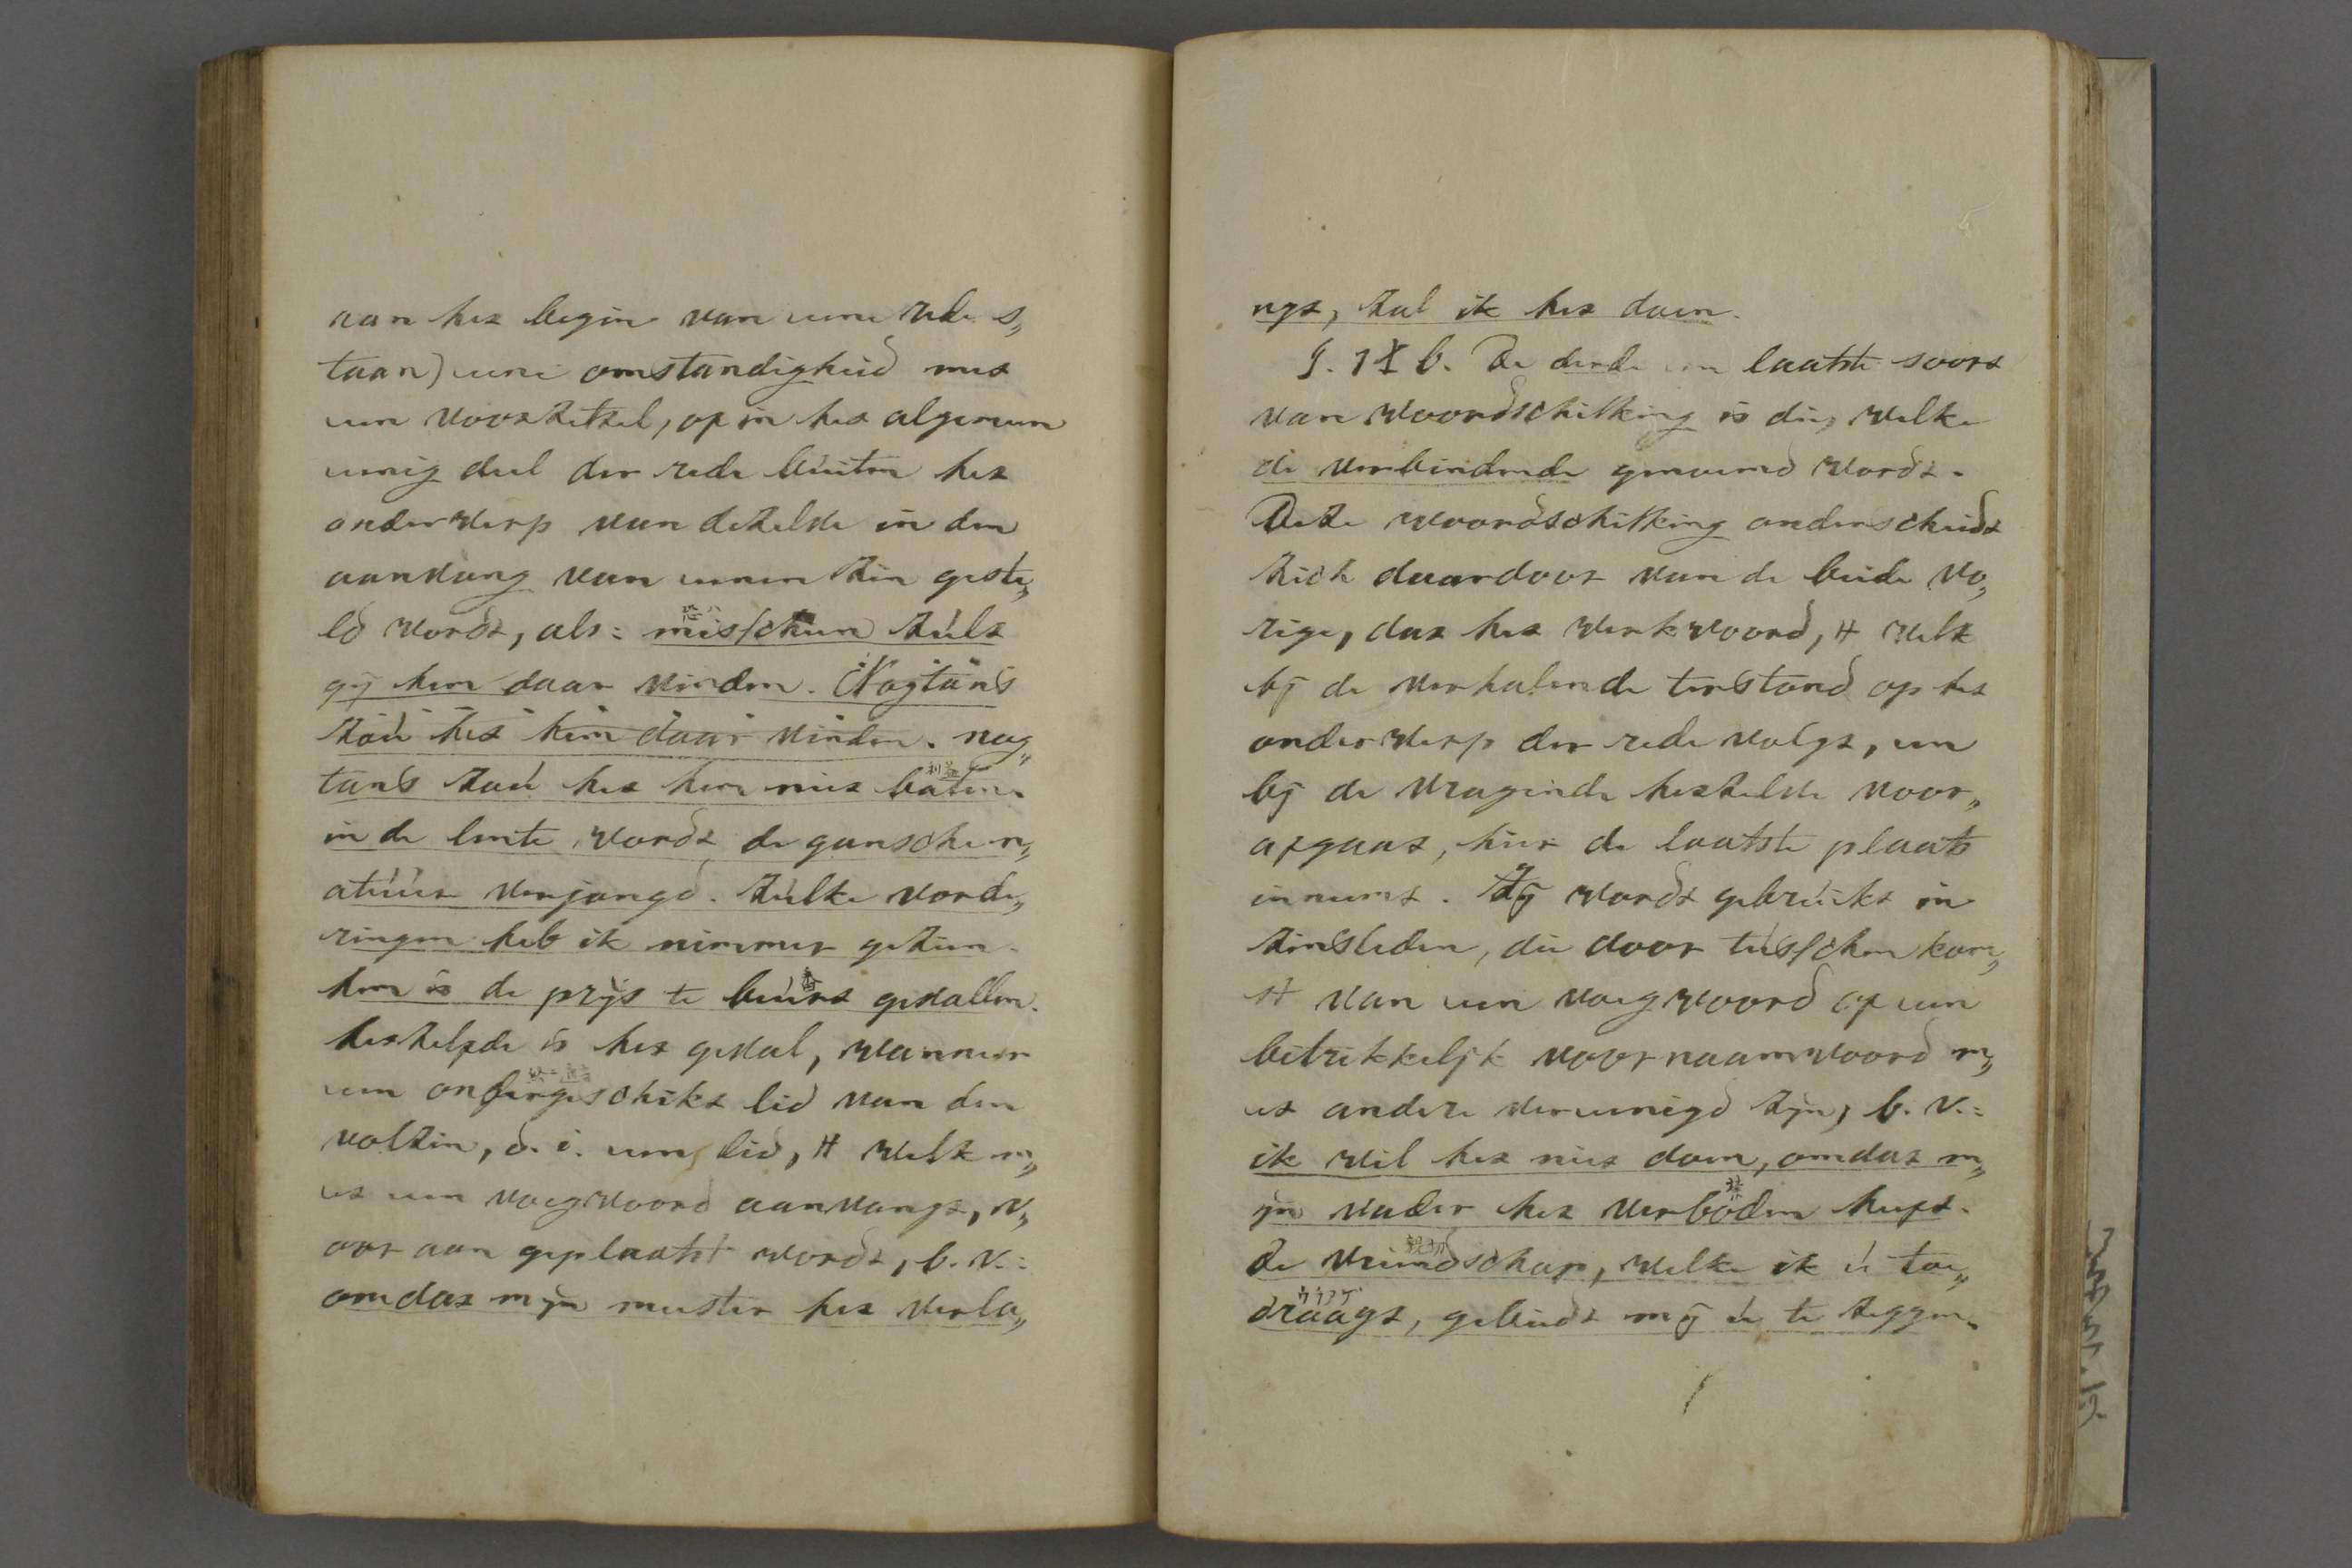 aan het begin van eene rede s„
taan) eene omstandigheid met
een voorzetzel, of in het algemeen
eenig deel der rede buiten het
onderwerp van dezelve in den
aanvang van eenen zin geste„
ld wordt, als: misschien zult
gij hem daar vinden. Nogtans
zou het hem daar vinden. nog„
tans zou het hem niet baten.
利益
in de lente wordt de gansche n„
atuur verjongd. zulke vorde„
ringen heb ik nimmer gezien.
hem is de prijs te beurt gevallen.
hetzelfde is het geval, wanneer
een ondergeschikt lid van den
volzin, d. i. een lid, 't welk m„
et een voegwoord aanvangt, v„
oor aan geplaatst wordt, b. v.:
omdat mijn meester het verla„
ngt, zal ik het doen.
§. 1X b. De derde en laatste soort
van woordschikking is die, welke
de verbindende genoemd wordt.
Deze woordschikking onderscheidt
zich daardoor van de beide vo„
rige, dat het werkwoord, 't welk
bij de verhalende terstond op het
onderwerp der rede volgt, en
bij de vragende hetzelve voor„
afgaat, hier de laatste plaats
inneemt. Zij wordt gebruikt in
zinsleden, die door tusschenkom„
st van een voegwoord of een
betrekkelijk voornaamwoord m„
et andere vereenigd zijn, b. v.:
ik wil het niet doen, omdat m„
ijn vader het verboden heeft.
禁
de vriendschap, welke ik u toe„
親切
draagt, gebiedt mij u te zeggen.